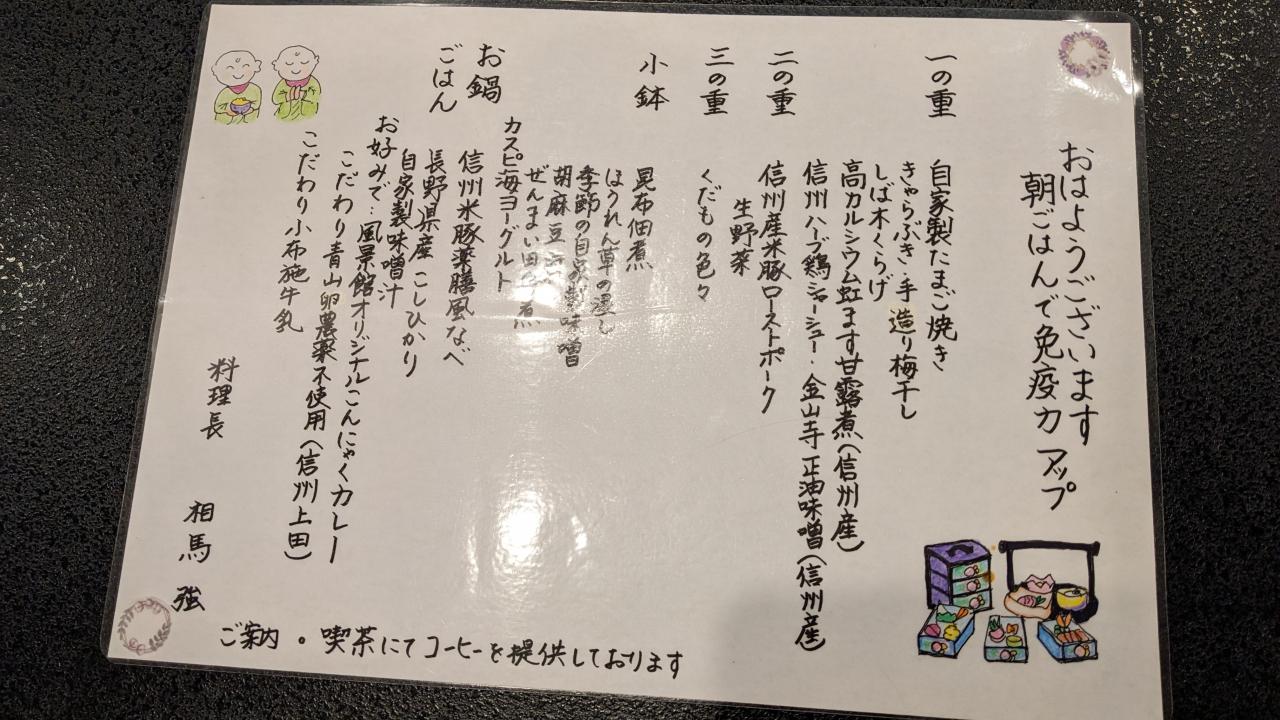 おはようございます
朝ごはんで免疫力アップ
一の重
自家製たまご焼き
きゃらぶき・手造り梅干し
しば木くらげ
高カルシウム虹ます甘露煮(信州産)
信州ハーブ鶏シャーシュー・金山寺正油味噌(信州産)
二の重
信州産米豚ローストポーク
生野菜
三の重
くだもの色々
小鉢
昆布佃煮
ほうれん草の浸し
季節の自家製味噌
胡麻豆
ぜんまい田舎煮
カスピ海ヨーグルト
お鍋
信州米豚薬膳風なべ
ごはん
長野県産こしひかり
自家製味噌汁
お好みで…風景館オリジナルこんにゃくカレー
こだわり青山卵農薬不使用(信州上田)
こだわり小布施牛乳
料理長 相馬 強
ご案内・喫茶にてコーヒーを提供しております